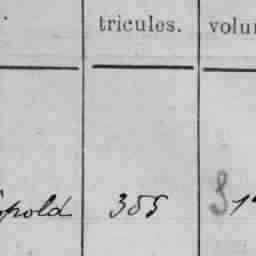 tricules. volu
opold 355